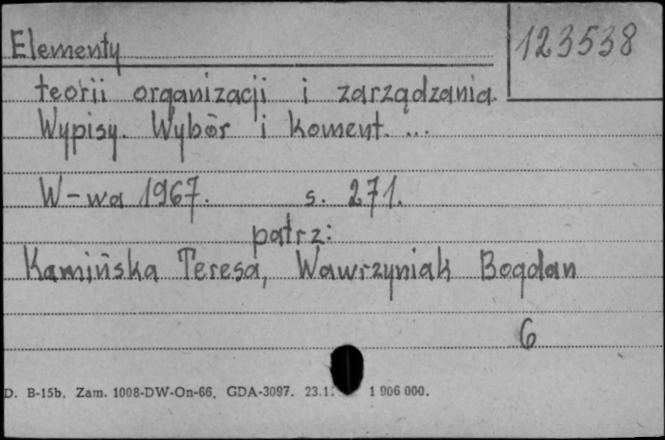 Elementy
123538
teorii organizacji i zarządzania.
Wypisy. Wybór i koment. ...
W-wa 1967. s. 271.
patrz:
Kamińska Teresa, Wawrzyniak Bogdan
6
D. B-15b. Zam. 1008-DW-On-66. GDA-3097. 23.1. 1 906 000.